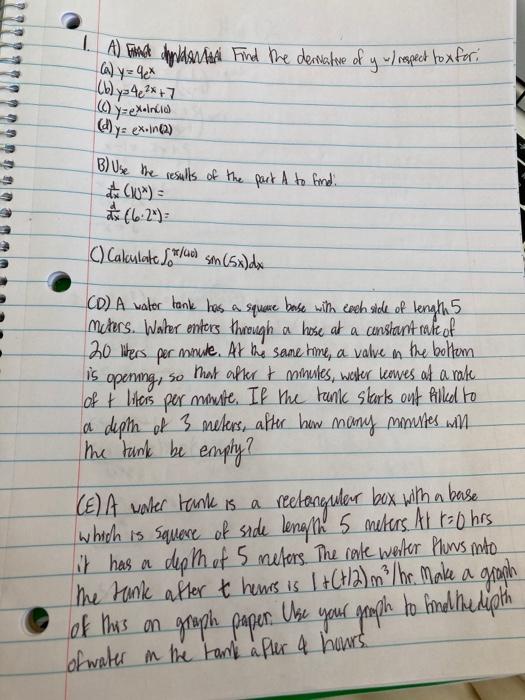 1. A) Find the derivative of y w/ respect to x for:
(a) y = 9eˣ
(b) y = 4e²ˣ + 7
(c) y = e^x•ln(10)
(d) y = e^x•ln(2)
B) Use the results of the part A to find:
d/dx (10ˣ) =
d/dx (6•2ˣ) =
C) Calculate ∫₀^π/(40) sin(5x)dx
(D) A water tank has a square base with each side of length 5
meters. Water enters through a hose at a constant rate of
20 liters per minute. At the same time, a valve in the bottom
is opening, so that after t minutes, water leaves at a rate
of t liters per minute. If the tank starts out filled to
a depth of 3 meters, after how many minutes will
the tank be empty?
(E) A water tank is a rectangular box with a base
which is square of side length 5 meters. At t=0 hrs
it has a depth of 5 meters. The rate water flows into
the tank after t hours is 1+(t/2) m³/hr. Make a graph
of this on graph paper. Use your graph to find the depth
of water in the tank after 4 hours.